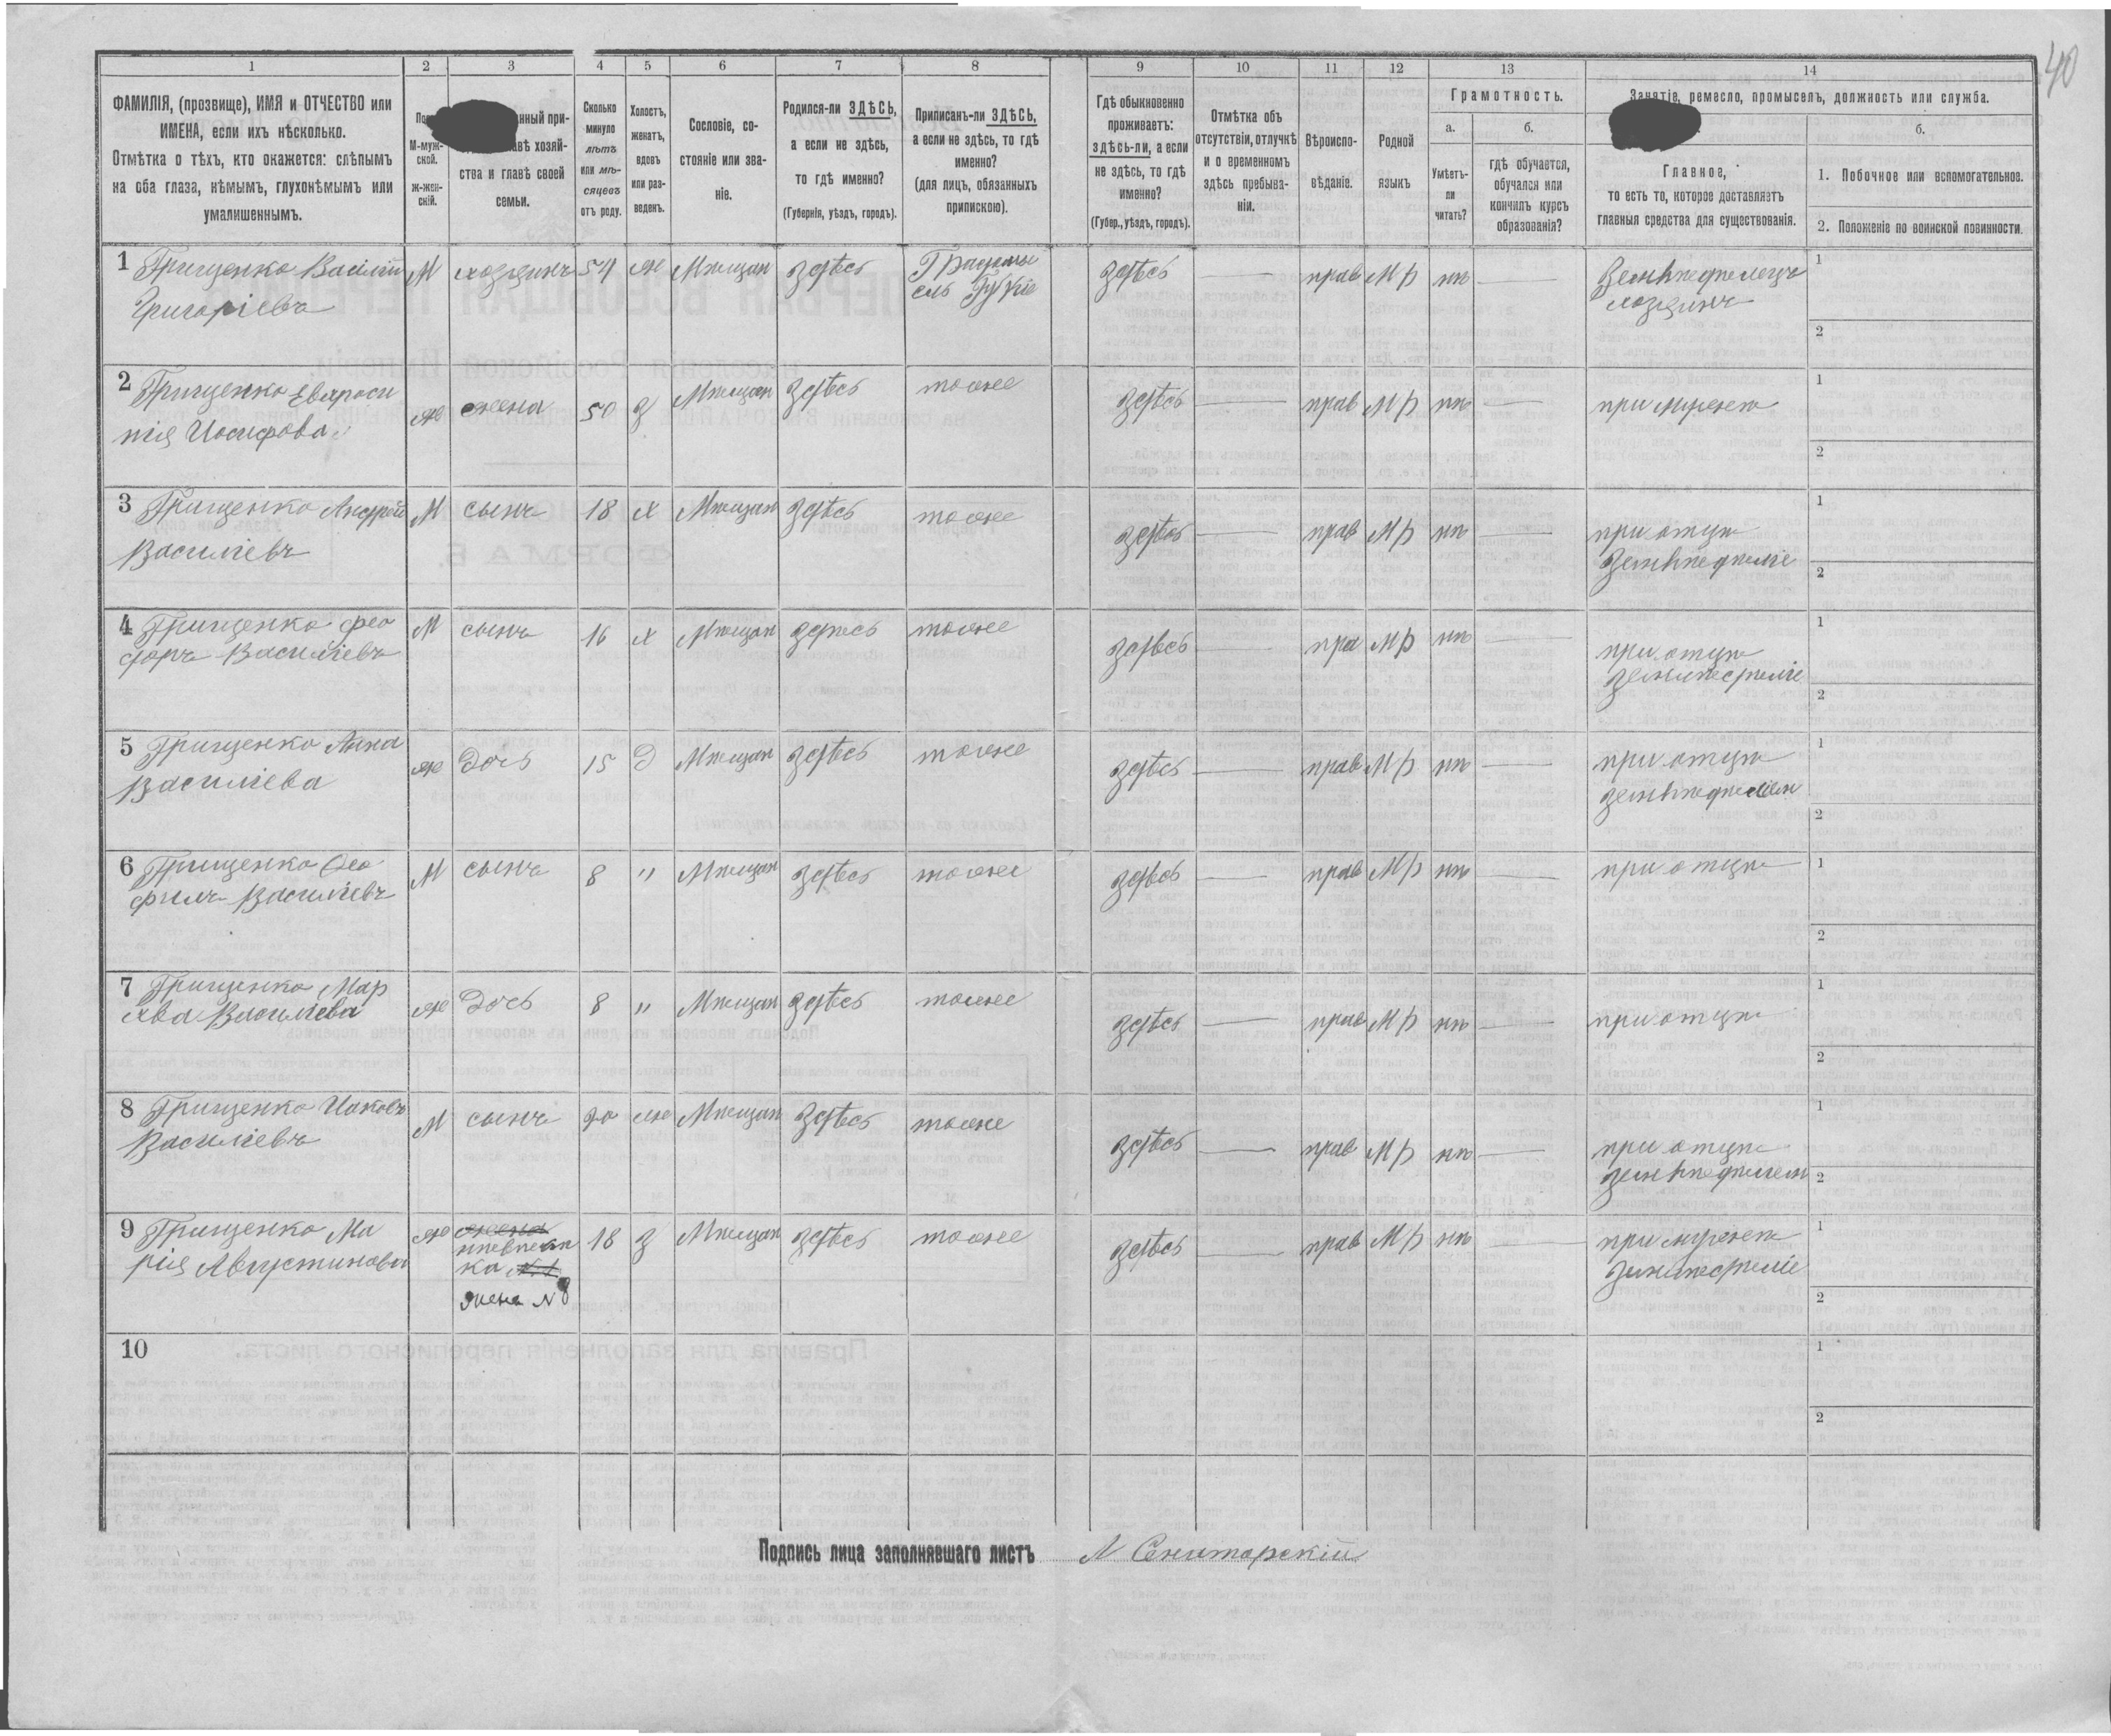 40
1 2 3 4 5 6 7 8 9 10 11 12 13 14
ФАМИЛІЯ, (прозвище), ИМЯ и ОТЧЕСТВО или
ИМЕНА, если ихъ нѣсколько.
Отмѣтка о тѣхъ, кто окажется: слѣпымъ
на оба глаза, нѣмымъ, глухонѣмымъ или
умалишеннымъ.
М-муж-
ской.
ж-жен-
скій.
хозяй-
ства и главѣ своей
семьи.
Сколько
минуло
лѣтъ
или мѣ-
сяцевъ
отъ роду.
Холостъ,
женатъ,
вдовъ
или раз-
веденъ.
Сословіе, со-
стояніе или зва-
ніе.
Родился-ли ЗДѢСЬ,
а если не здѣсь,
то гдѣ именно?
(Губернія, уѣздъ, городъ).
Приписанъ-ли ЗДѢСЬ,
а если не здѣсь, то гдѣ
именно?
(для лицъ, обязанныхъ
припискою).
Гдѣ обыкновенно
проживаетъ:
здѣсь-ли, а если
не здѣсь, то гдѣ
именно?
(Губер., уѣздъ, городъ).
Отмѣтка объ
отсутствіи, отлучкѣ
и о временномъ
здѣсь пребыва-
ніи.
Вѣроиспо-
вѣданіе.
Родной
языкъ
Грамотность.
а.
Умѣетъ-
ли
читать?
б.
гдѣ обучается,
обучался или
кончилъ курсъ
образованія?
Занятіе, ремесло, промыселъ, должность или служба.
Главное,
то есть то, которое доставляетъ
главныя средства для существованія.
б.
1. Побочное или вспомогательное.
2. Положеніе по воинской повинности.
1 Грищенко Василій М хозяинъ 54 ж Мѣщан здѣсь здѣсь — прав МР нѣ — Земледѣлецъ 1
Григоріевъ хозяинъ
2
2 Грищенко Евфроси ж жена 50 З Мѣщан здѣсь тоже здѣсь — прав МР нѣ — при мужѣ 1
нія Иосифова
2
3 Грищенко Андрей М сынъ 18 х Мѣщан здѣсь тоже здѣсь — прав МР нѣ — при отцѣ 1
Василіевъ
2
4 Грищенко Фео М сынъ 16 х Мѣщан здѣсь тоже здѣсь — пра МР нѣ — при отцѣ 1
доръ Василіевъ
2
5 Грищенко Анна ж Дочь 15 Д Мѣщан здѣсь тоже здѣсь — прав МР нѣ — при отцѣ 1
Василіева
2
6 Грищенко Ѳео М сынъ 8 " Мѣщан здѣсь тоже здѣсь — прав МР нѣ — при отцѣ 1
филъ Василіевъ
2
7 Грищенко Мар ж Дочь 8 " Мѣщан здѣсь тоже здѣсь — прав МР нѣ — при отцѣ 1
Василіева
2
8 Грищенко Иаковъ М сынъ 20 ж Мѣщан здѣсь тоже здѣсь — прав МР нѣ — при отцѣ 1
Василіевъ
2
9 Грищенко Ма ж жена 18 З Мѣщан здѣсь тоже здѣсь — прав МР нѣ — 1
рія Августинова
жена N 8
2
10 1
2
Подпись лица заполнявшаго листъ